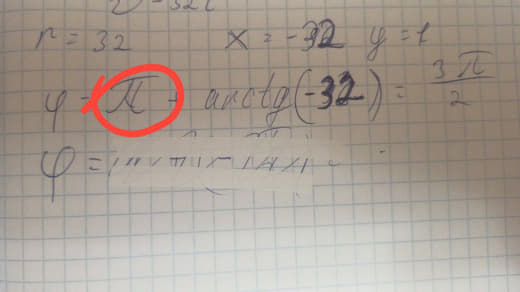 √-32i
r = 32 x = -32 y = 1
φ = π - arctg(-32) = 3π/2
φ =